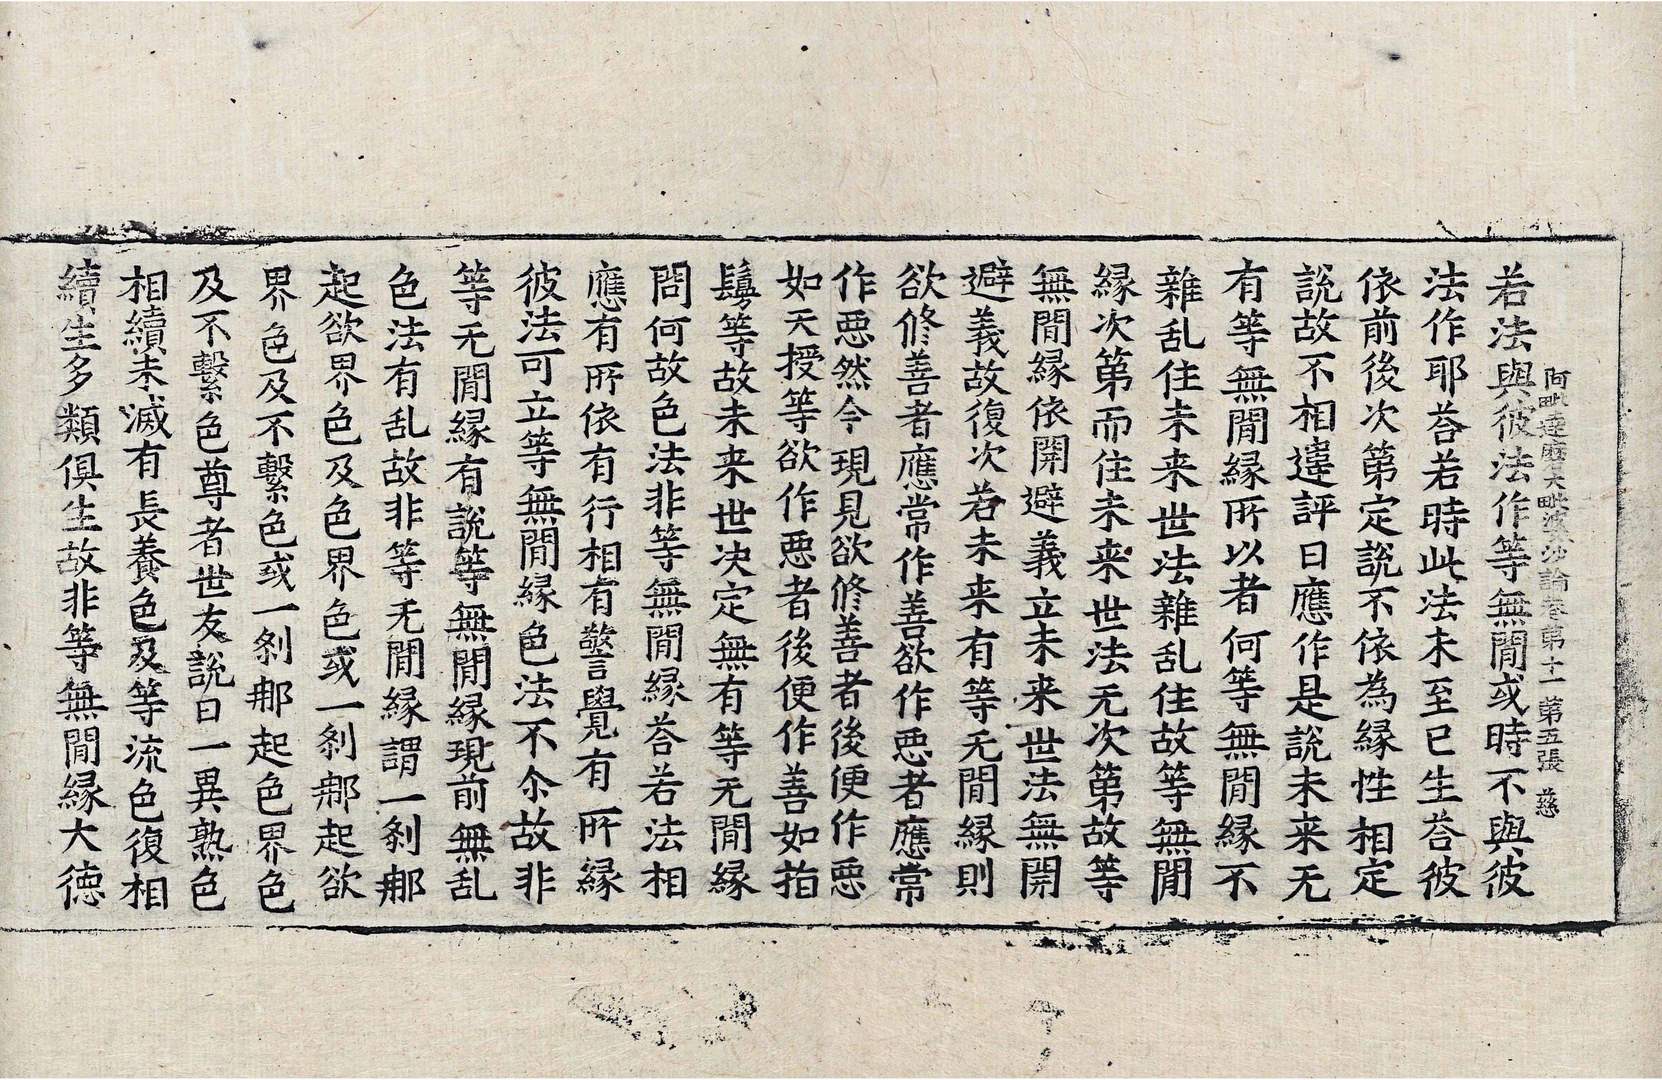 阿毗達磨大毗婆沙論卷第十一 第五張 慈
若法與彼法作等無閒或時不與彼
法作耶荅若時此法未至已生荅彼
依前後次第定說不依為縁性相定
說故不相違評曰應作是說未来无
有等無閒縁所以者何等無閒縁不
雜乱住未来世法雜乱住故等無閒
縁次第而住未来世法无次第故等
無閒縁依開避義立未来世法無開
避義故復次若未来有等无閒縁則
欲修善者應常作善欲作惡者應常
作惡然今現見欲修善者後便作惡
如天授等欲作惡者後便作善如指
鬘等故未来世决定無有等无閒縁
問何故色法非等無閒縁荅若法相
應有所依有行相有警覺有所縁
彼法可立等無閒縁色法不尒故非
等无閒縁有說等無閒縁現前無乱
色法有乱故非等无閒縁謂一剎郍
起欲界色及色界色或一剎郍起欲
界色及不繫色或一剎郍起色界色
及不繫色尊者世友說曰一異熟色
相續未滅有長養色及等流色復相
續生多類俱生故非等無閒縁大德